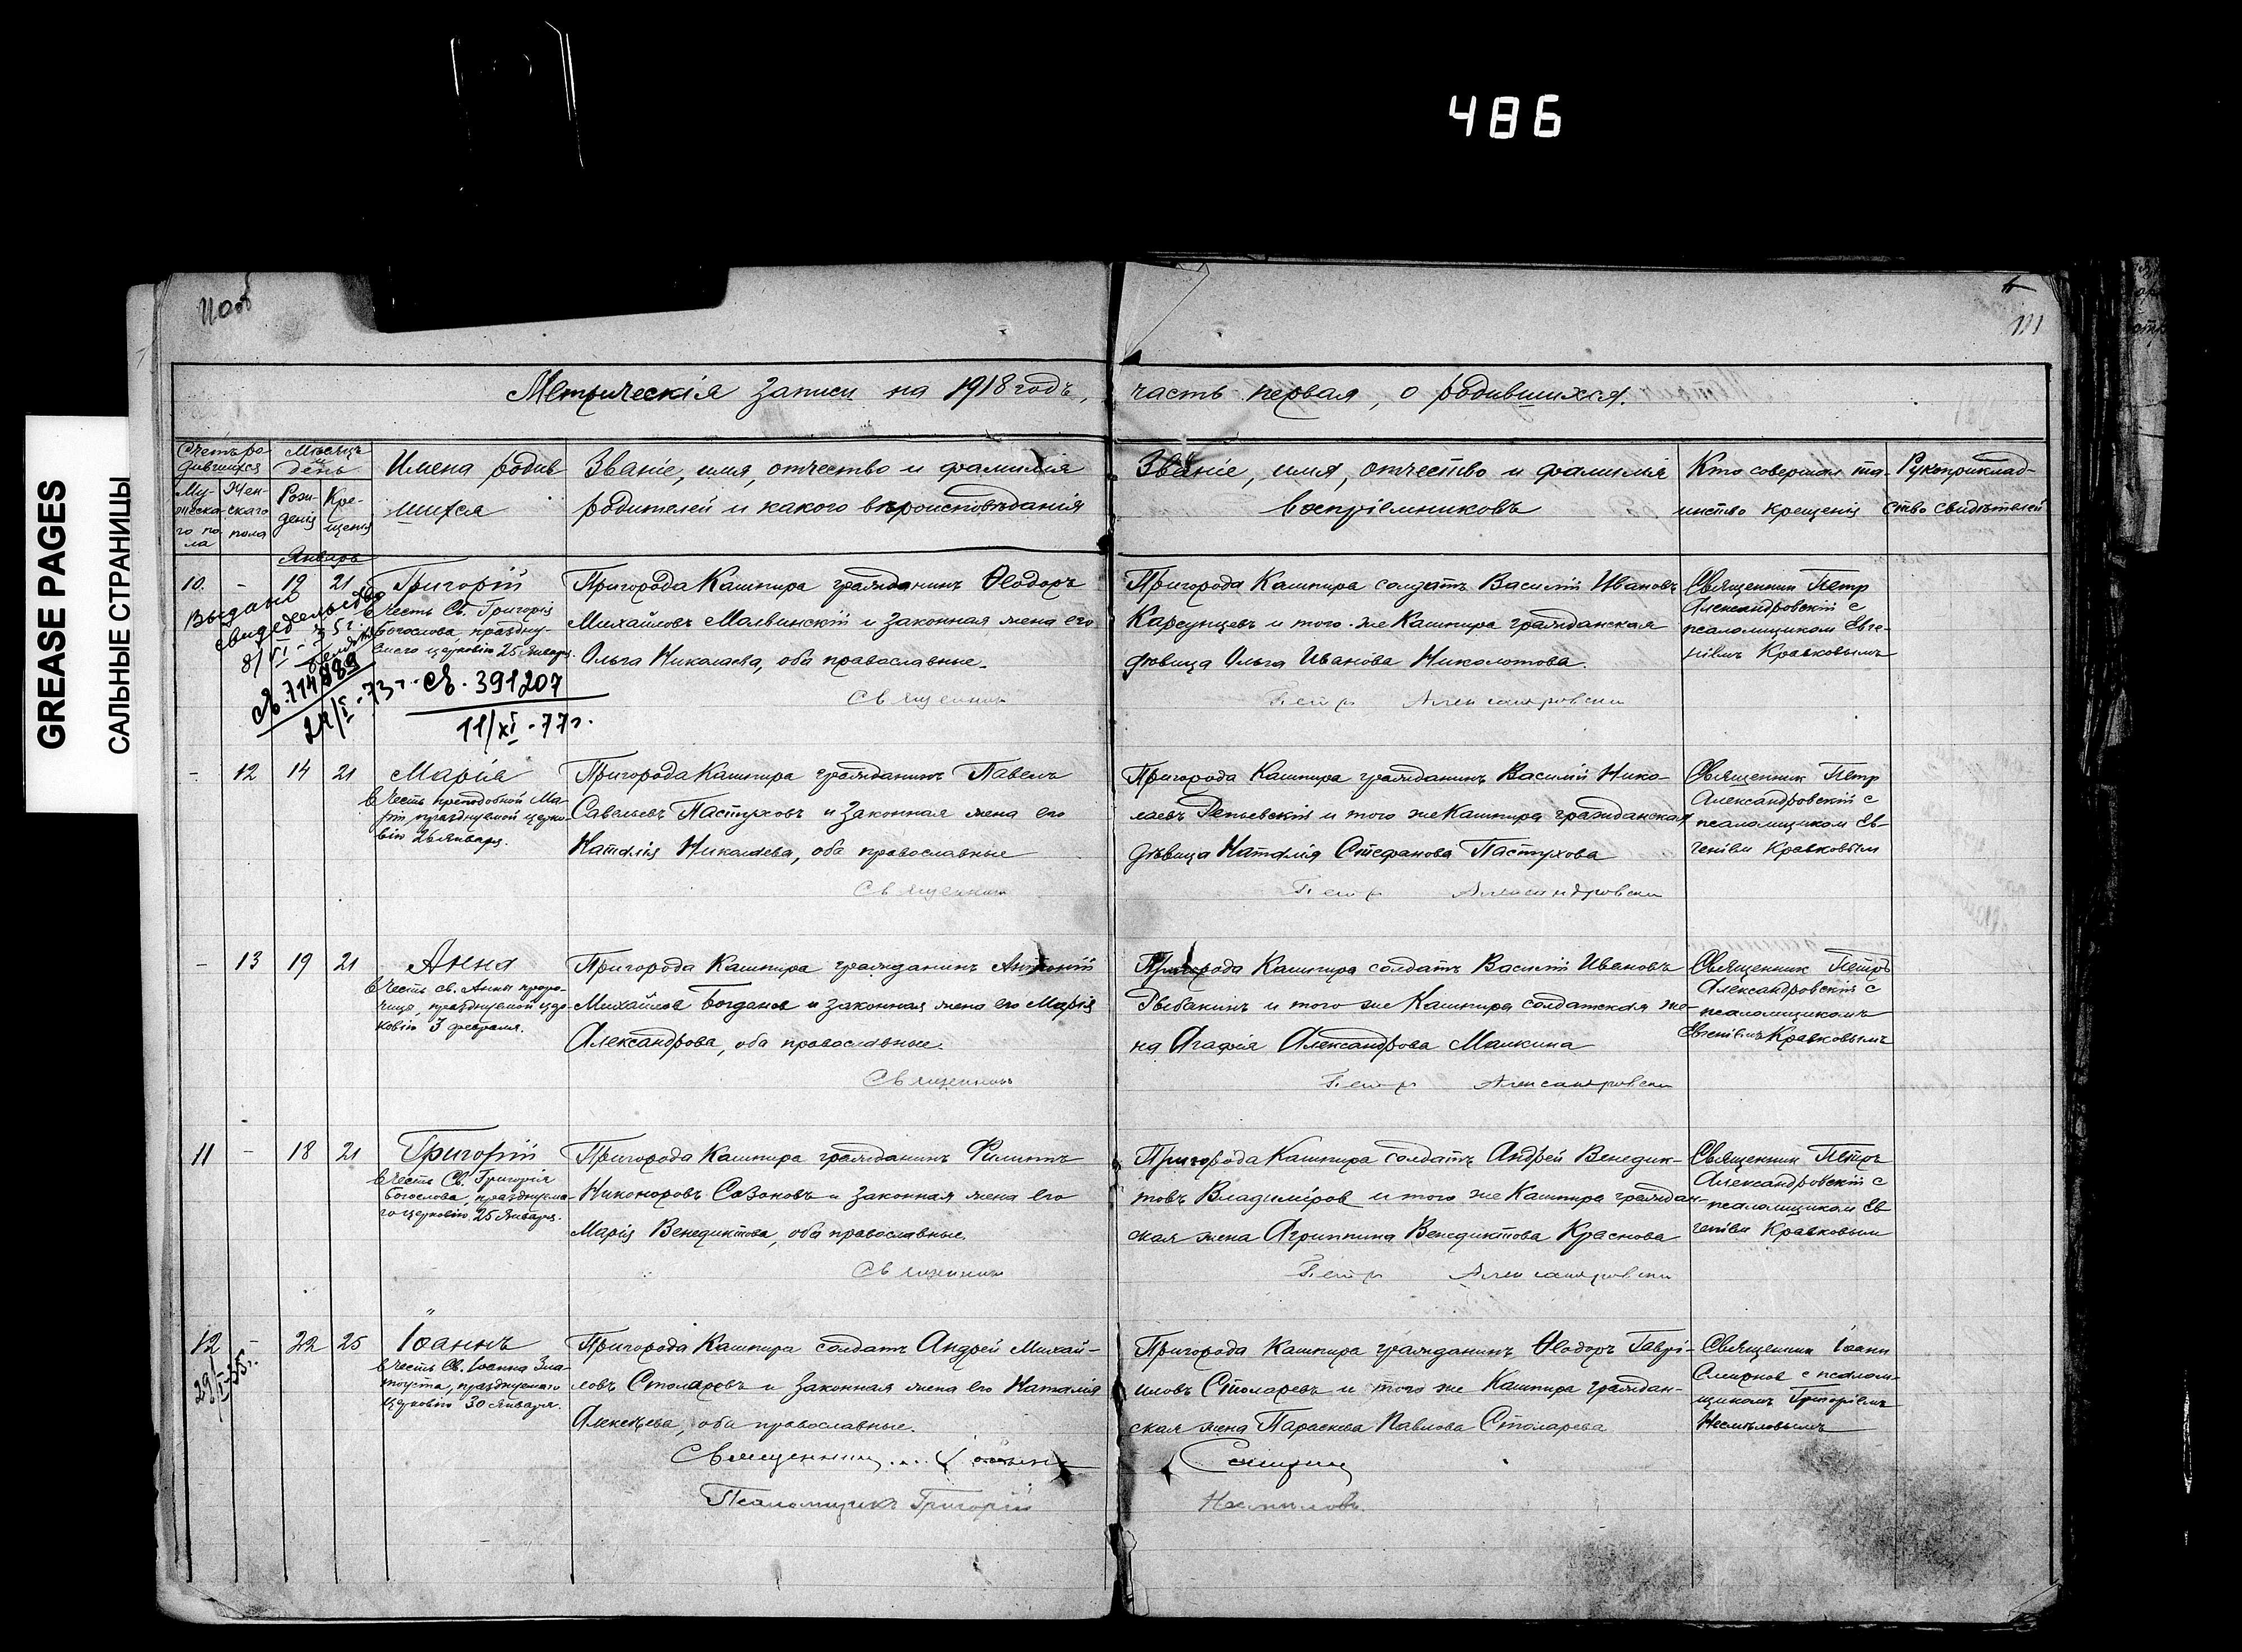 486
GREASE PAGES
САЛЬНЫЕ СТРАНИЦЫ
110об
111
Метрическія записи на 1918 годъ, часть первая, о родившихся.
Счетъ ро
дившихся
Му-
жеска-
го по
ла
Жен-
скаго
пола
Мѣсяцъ
и
день
Рож-
денія
Кре-
щенія
Имена родив
шихся
Званіе, имя, отчество и фамилія
родителей и какого вѣроисповѣданія
Званіе, имя, отчество и фамилія
воспріемниковъ
Кто совершал та-
инство крещенія
Рукоприклад-
ство свидѣтелей
Январь
10. - 19 21 Григорій
в честь Св. Григорія
Богослова, праздну-
емаго церковію 25 Января.
Выдано
свидедельство
св. 714889
24/I-73г.
св. 391207
11/XI-77г.
Пригорода Кашпира гражданинъ Ѳеодоръ
Михайловъ Малвинскій и законная жена его
Ольга Николаева, оба православные.
Священник
Пригорода Кашпира солдатъ Василій Ивановъ
Карсунцевъ и того-же Кашпира гражданская
дѣвица Ольга Иванова Николотова.
Петр Александровски
Священник Петр
Александровскій с
псаломщиком Евге-
ніемъ Кравковымъ
- 12 14 21 Марія
в честь преподобной Ма-
ріи празднуемой церко-
вію 26 Января.
Пригорода Кашпира гражданинъ Павелъ
Савельевъ Пастуховъ и законная жена его
Наталія Николаева, оба православные
Священник
Пригорода Кашпира гражданинъ Василій Нико-
лаевъ Репьевскій и того же Кашпира гражданская
дѣвица Наталія Стефанова Пастухова
Петр Александровски
Священник Петр
Александровскій с
псаломщиком Ев-
геніем Кравковым
- 13 19 21 Анна
в честь св. Анны проро-
чицы, празднуемой цер-
ковію 3 февраля.
Пригорода Кашпира гражданинъ Антоній
Михайлов Богданов и законная жена его Марія
Александрова, оба православные.
Священник
Пригорода Кашпира солдатъ Василій Ивановъ
Рыбакинъ и того же Кашпира солдатская же-
на Агафія Александрова Малкина
Петр Александровски
Священник Петръ
Александровскій с
псаломщикомъ
Евгеніемъ Кравковымъ
11 - 18 21 Григорій
в честь Св. Григорія
Богослова, празднуема-
го церковію 25 Января.
Пригорода Кашпира гражданинъ Филиппъ
Никоноровъ Сазоновъ и законная жена его
Марія Венедиктова, оба православные.
Священник
Пригорода Кашпира солдатъ Андрей Венедик-
товъ Владиміров и того же Кашпира граждан-
ская жена Агриппина Венедиктова Краснова
Петр Александровски
Священник Петръ
Александровскій с
псаломщиком Ев
геніем Кравковым
12 - 22 25 Іоаннъ
29/I-35г.
в честь Св. Іоанна Зла-
тоуста, празднуемаго
церковію 30 Января.
Пригорода Кашпира солдатъ Андрей Михай-
ловъ Столяровъ и законная жена его Наталія
Алексѣева, оба православные.
Священник Іоаннъ Смирнов
Псаломщикъ Григорій Несмѣловъ.
Пригорода Кашпира гражданинъ Ѳеодоръ Гаврі-
иловъ Столяревъ и того же Кашпира граждан-
ская жена Параскева Павлова Столярева
Священник Іоанн
Смирнов с псалом-
щикомъ Григоріемъ
Несмѣловымъ